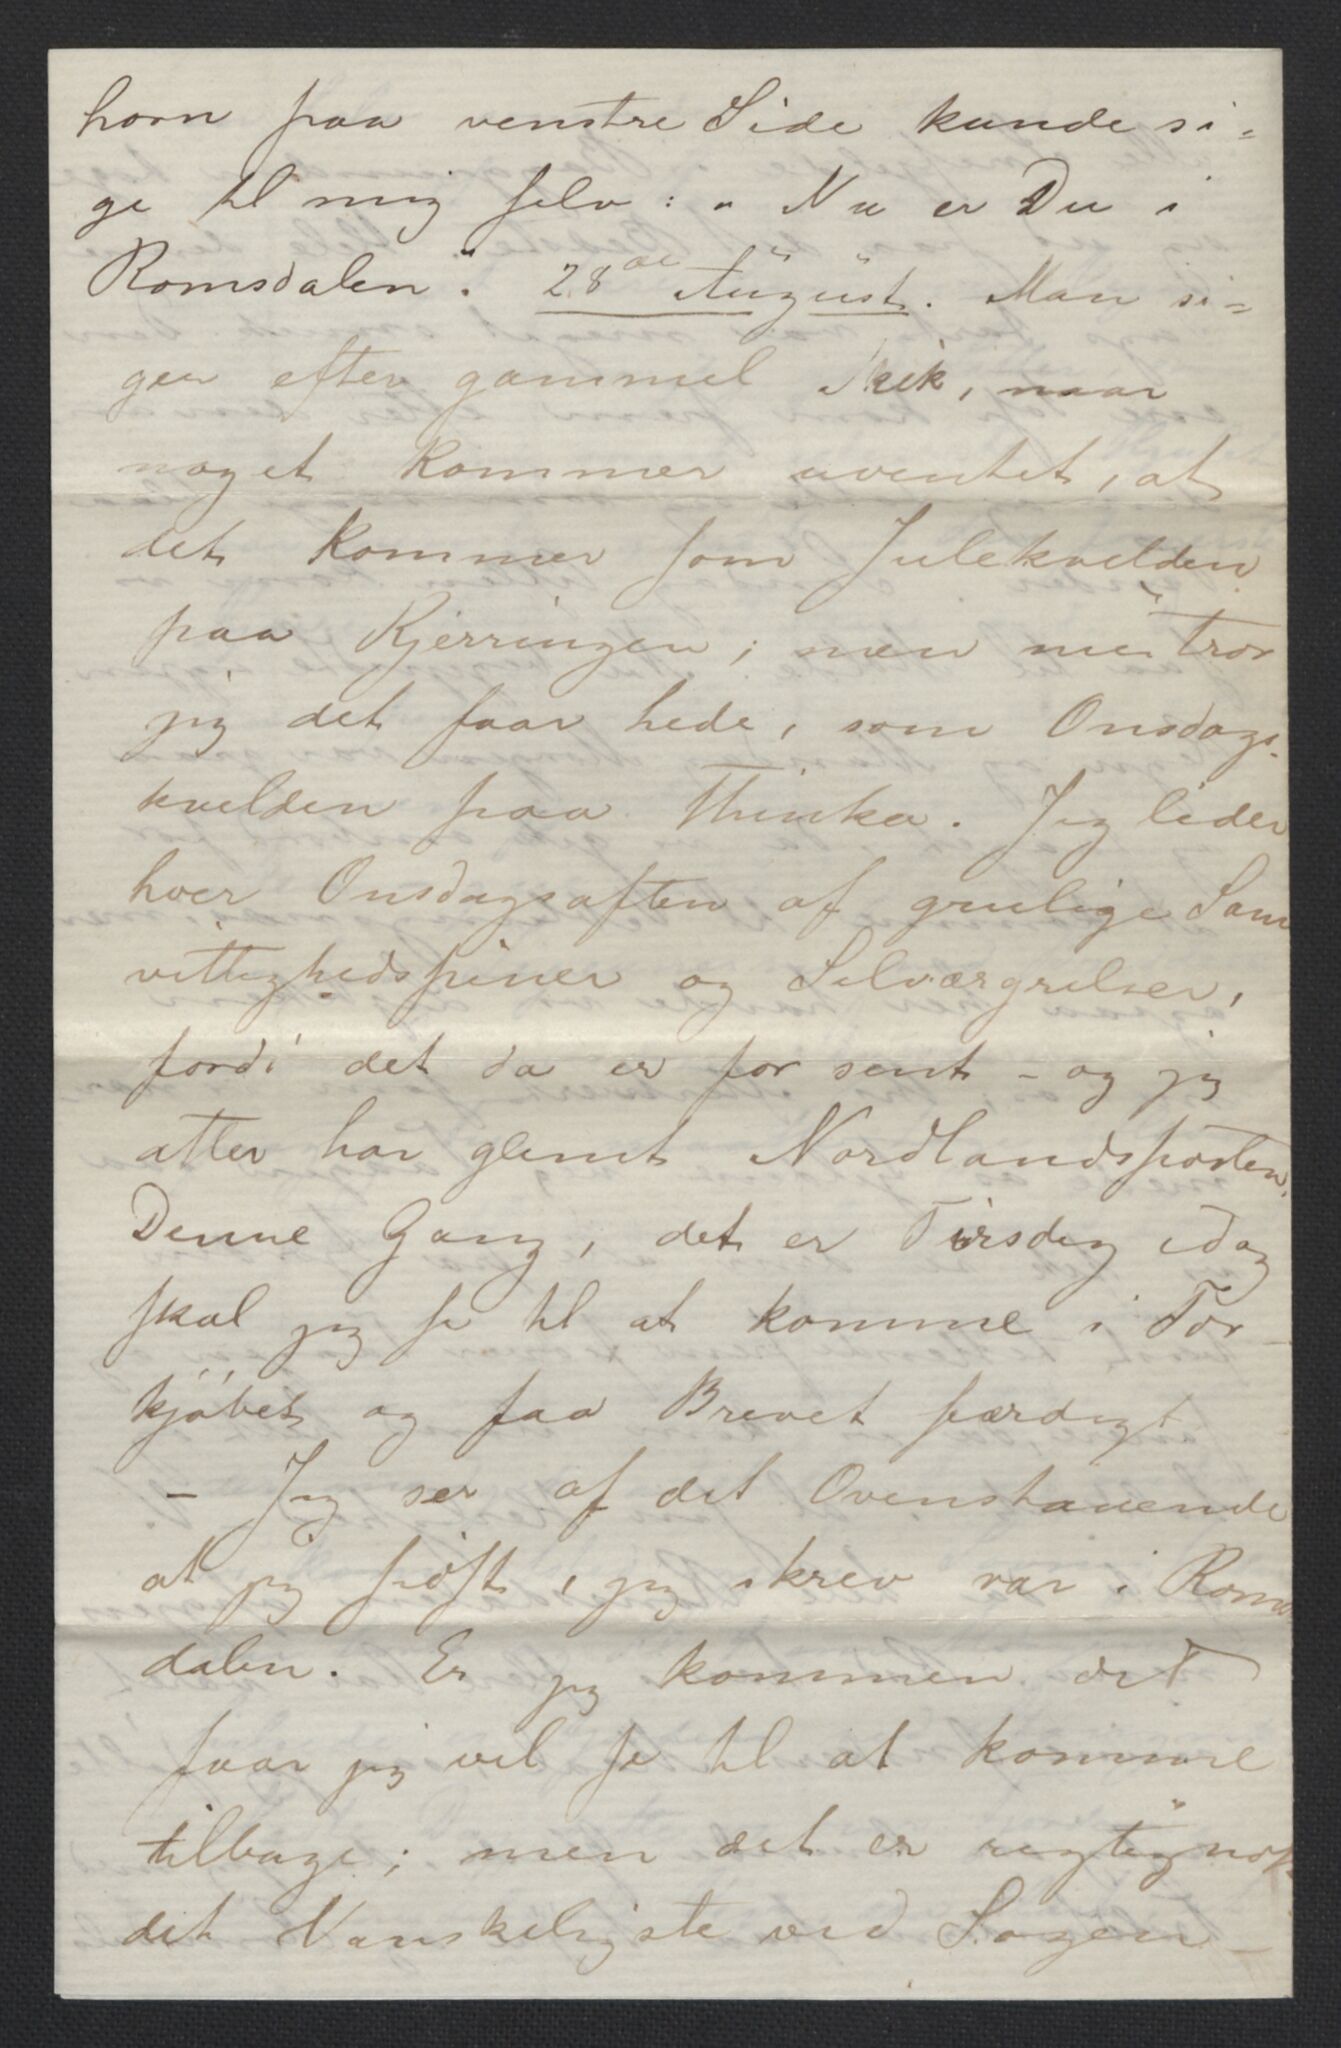 horn paa venstre Side kunde si-
ge til mig selv: "Nu er Du i
Romsdalen". 28de August. Man si-
ger efter gammel Skik, naar
noget kommer uventet, at
det kommer som Julekvelden
paa Kjerringen; men nu tror
jeg det faar hede, som Onsdags-
kvelden paa Thinka. Jeg lider
hver Onsdagsaften af gruelige Sam
vittighedspiner og Selværgrelser,
fordi det da er for sent - og jeg
atter har glemt Nordlandsposten.
Denne Gang, det er Tirsdag idag
skal jeg se til at komme i For-
kjöbet og faa Brevet færdigt
- Jeg ser af det Ovenstaaende
at jeg sidst, jeg skrev var i Roms
dalen. Er jeg kommen did
faar jeg vel se til at komme
tilbage; men det er rigtignok
det Vanskeligste ved Sagen -